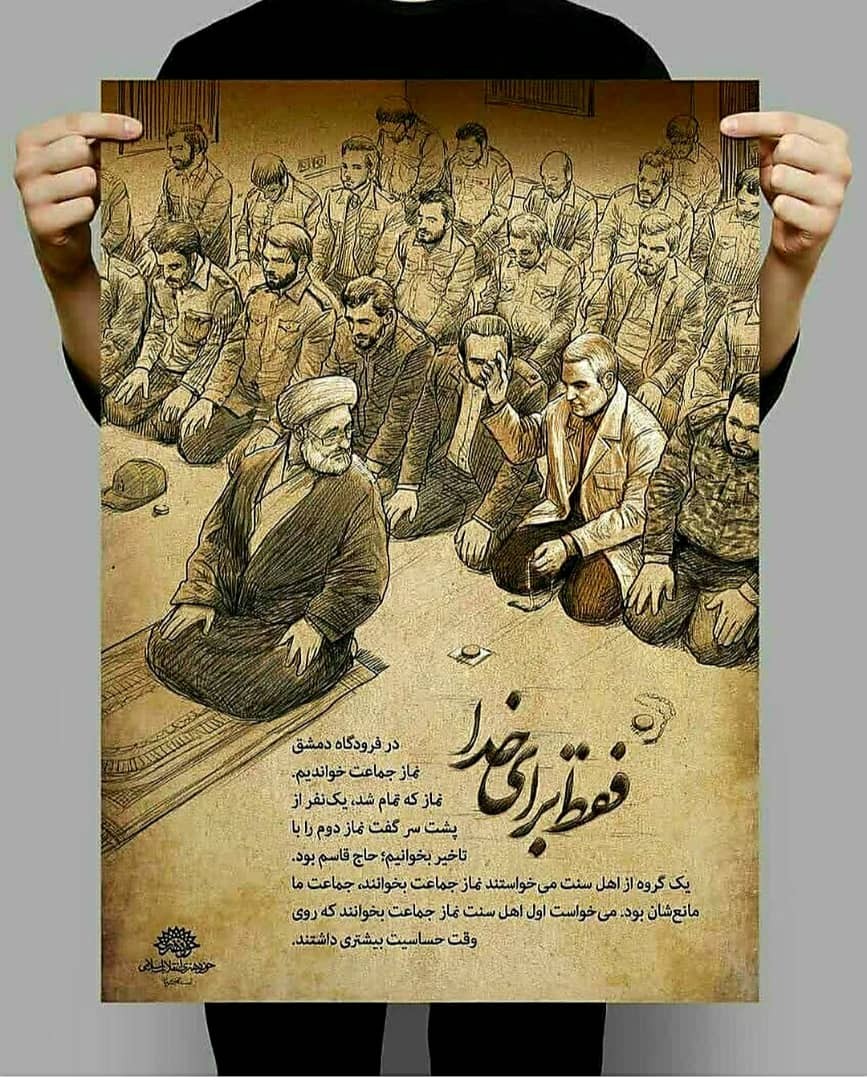 فقط برای خدا
در فرودگاه دمشق
نماز جماعت خواندیم.
نماز که تمام شد، یک‌نفر از
پشت سر گفت نماز دوم را با
تاخیر بخوانیم؛ حاج قاسم بود.
یک گروه از اهل سنت می‌خواستند نماز جماعت بخوانند، جماعت ما
مانع‌شان بود. می‌خواست اول اهل سنت نماز جماعت بخوانند که روی
وقت حساسیت بیشتری داشتند.
حوزه هنری
حوزه هنری انقلاب اسلامی